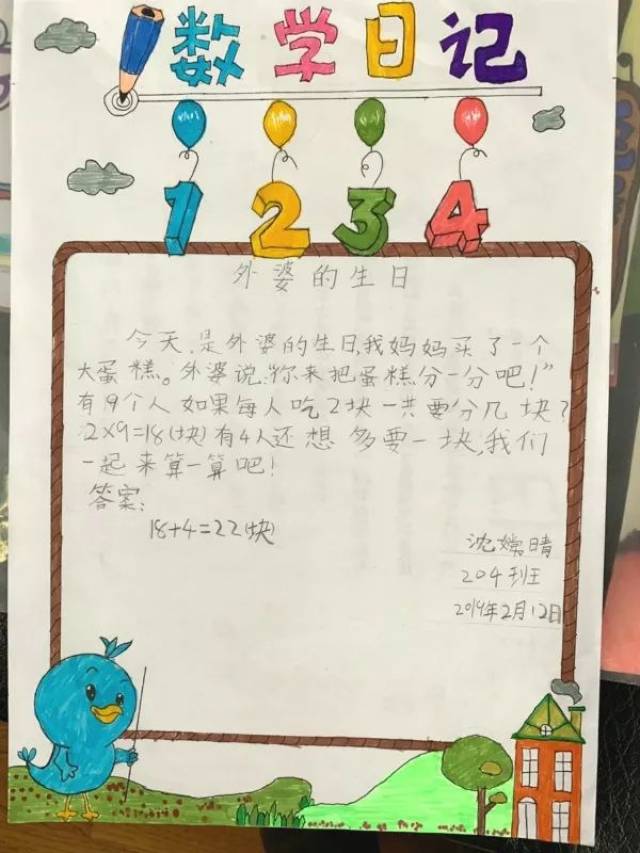 数学日记
1 2 3 4
外婆的生日
今天,是外婆的生日,我妈妈买了一个
大蛋糕。外婆说:“你来把蛋糕分一分吧!”
有9个人如果每人吃2块一共要分几块?
2×9=18(块)有4人还想多要一块,我们
一起来算一算吧!
答案:
18+4=22(块)
沈嫦晴
204班
2019年2月12日